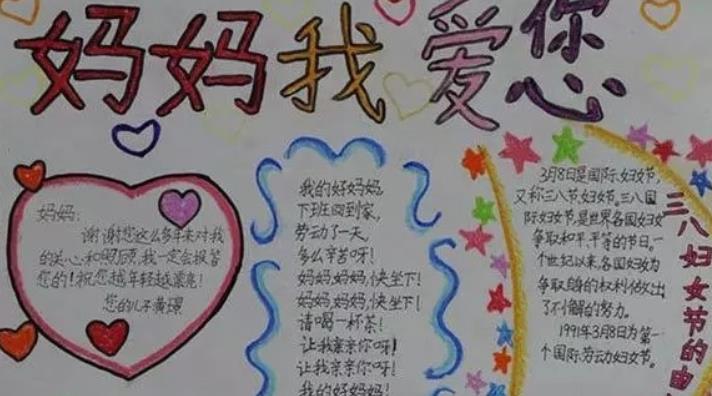 妈妈我爱您
妈妈:
谢谢您这么多年来对我
的关心和照顾,我一定会报答
您的!祝您越年轻越漂亮!
您的儿子黄璟
我的好妈妈,
下班回到家,
劳动了一天,
多么辛苦呀!
妈妈,妈妈,快坐下!
妈妈,妈妈,快坐下!
请喝一杯茶!
让我亲亲你呀!
让我亲亲你呀!
我的好妈妈!
3月8日是国际妇女节,
又称三八节,妇女节。三八国
际妇女节是世界各国妇女
争取和平、平等的节日。一
个世纪以来,各国妇女为
争取自身的权利做出
了不懈的努力。
1991年3月8日为第一
个国际劳动妇女节。
三八妇女节的由